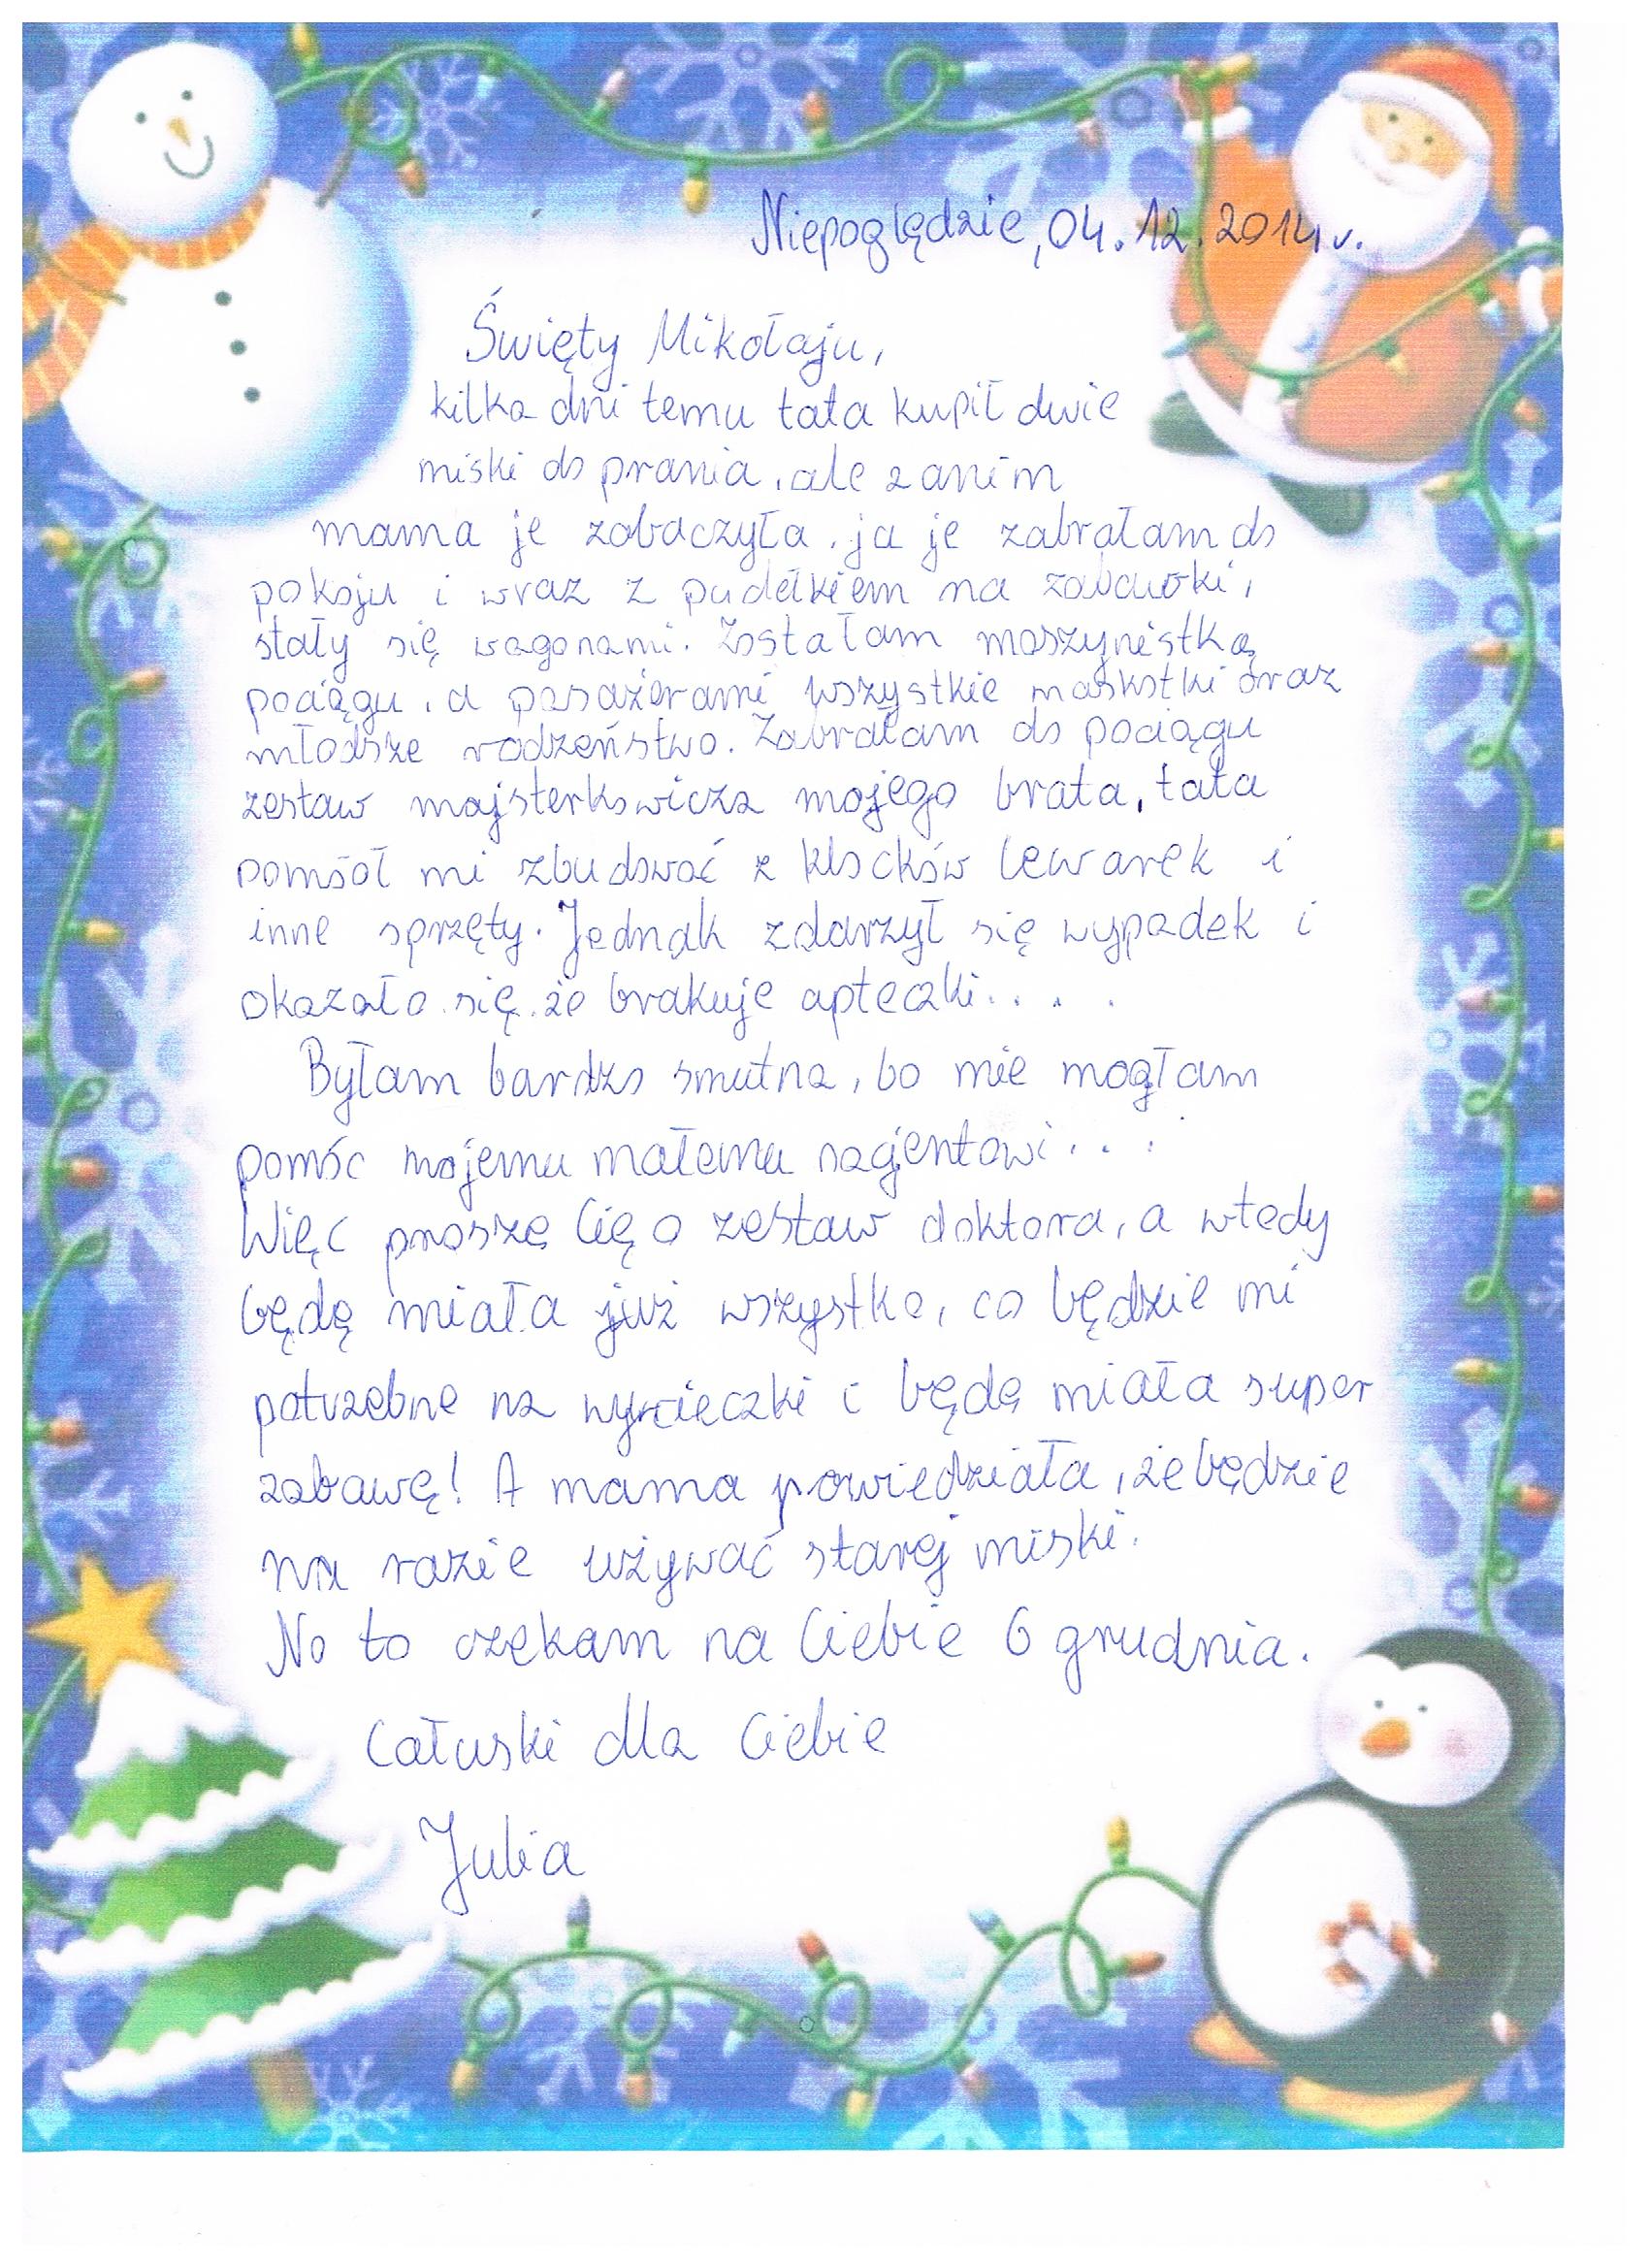 Niepoględzie, 04.12.2014 r.
Święty Mikołaju,
kilka dni temu tata kupił dwie
miski do prania, ale zanim
mama je zobaczyła, ja je zabrałam do
pokoju i wraz z pudełkiem na zabawki,
stały się wagonami. Zostałam maszynistką
pociągu, a pasażerami wszystkie maskotki oraz
młodsze rodzeństwo. Zabrałam do pociągu
zestaw majsterkowicza mojego brata, tata
pomógł mi zbudować z klocków lewarek i
inne sprzęty. Jednak zdarzył się wypadek i
okazało się, że brakuje apteczki....
Byłam bardzo smutna, bo nie mogłam
pomóc mojemu małemu pacjentowi...
Więc proszę Cię o zestaw doktora, a wtedy
będę miała już wszystko, co będzie mi
potrzebne na wycieczki i będę miała super
zabawę! A mama powiedziała, że będzie
na razie używać starej miski.
No to czekam na Ciebie 6 grudnia.
Całuski dla Ciebie
Julia